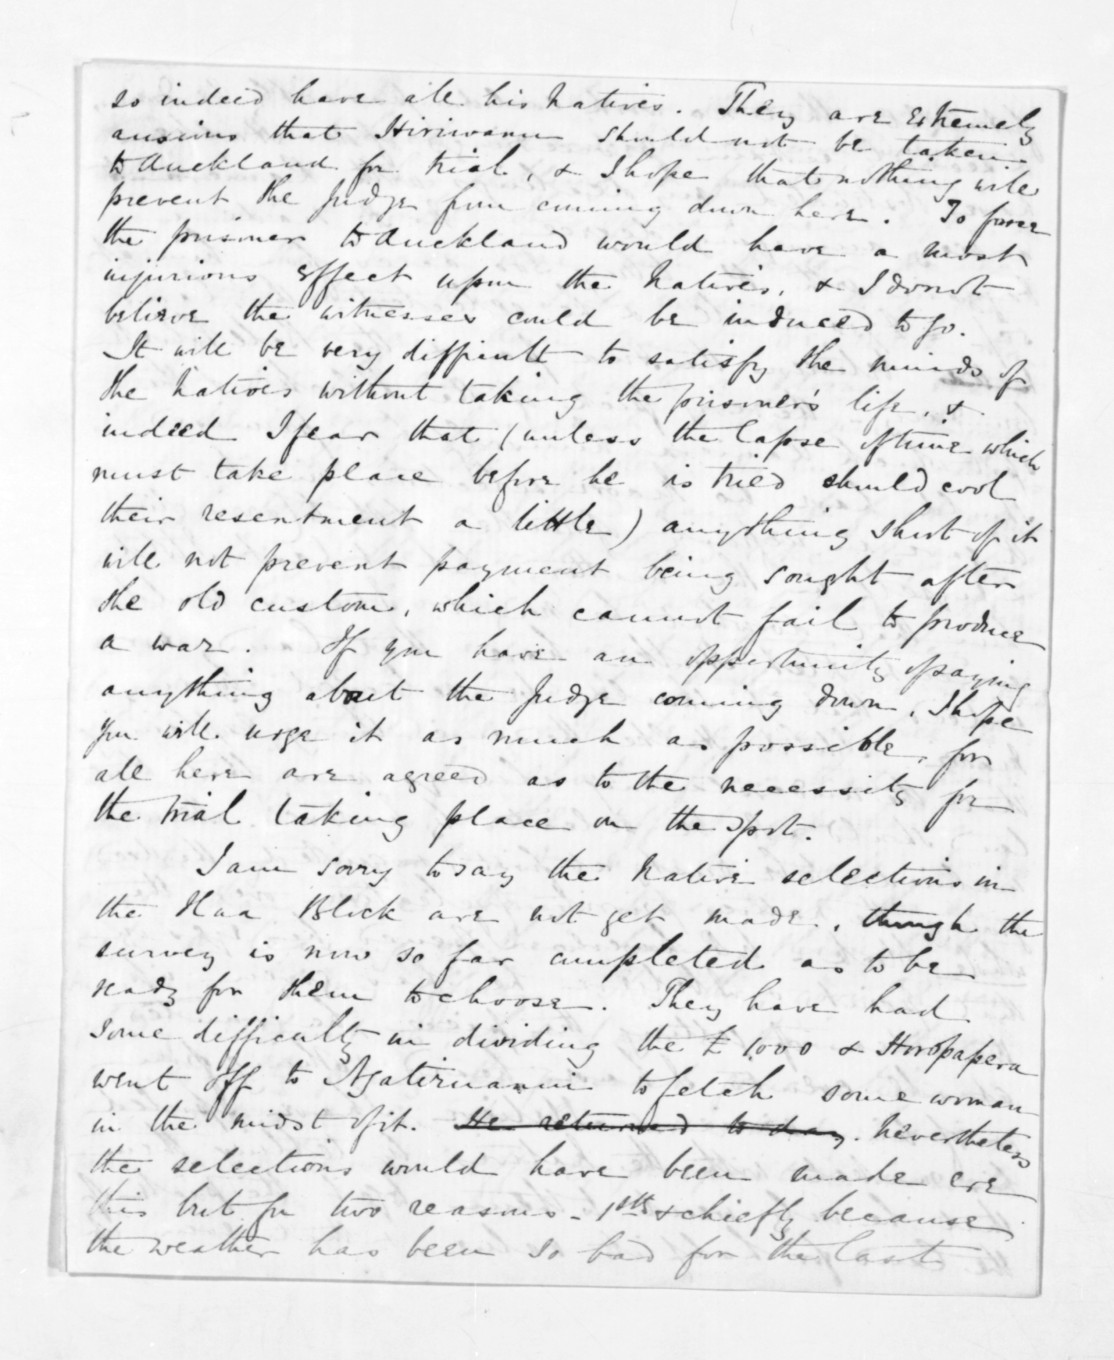 so indeed have all his Natives. They are extremely
anxious that Hiriwanu should not be taken
to Auckland for trial, & I hope that nothing will
prevent the Judge from coming down here. To force
the prisoner to Auckland would have a most
injurious effect upon the Natives, & I do not
believe the witnesses could be induced to go.
It will be very difficult to satisfy the minds of
the Natives without taking the prisoner's life, &
indeed I fear that (unless the lapse of time which
must take place before he is tried should cool
their resentment a little) anything short of it
will not prevent payment being sought after
the old custom, which cannot fail to produce
a war. If you have an opportunity of saying
anything about the Judge coming down, I hope
you will urge it as much as possible, for
all here are agreed as to the necessity for
the trial taking place on the spot.
I am sorry to say the Native selections in
the Hua Block are not yet made, though the
survey is now so far completed as to be
ready for them to choose. They have had
some difficulty in dividing the £1,000 & Horopapera
went off to Ngatiruanui to fetch some woman
in the midst of it. He returned to day. Nevertheless
the selections would have been made ere
this but for two reasons - 1st & chiefly because
the weather has been so bad for the last